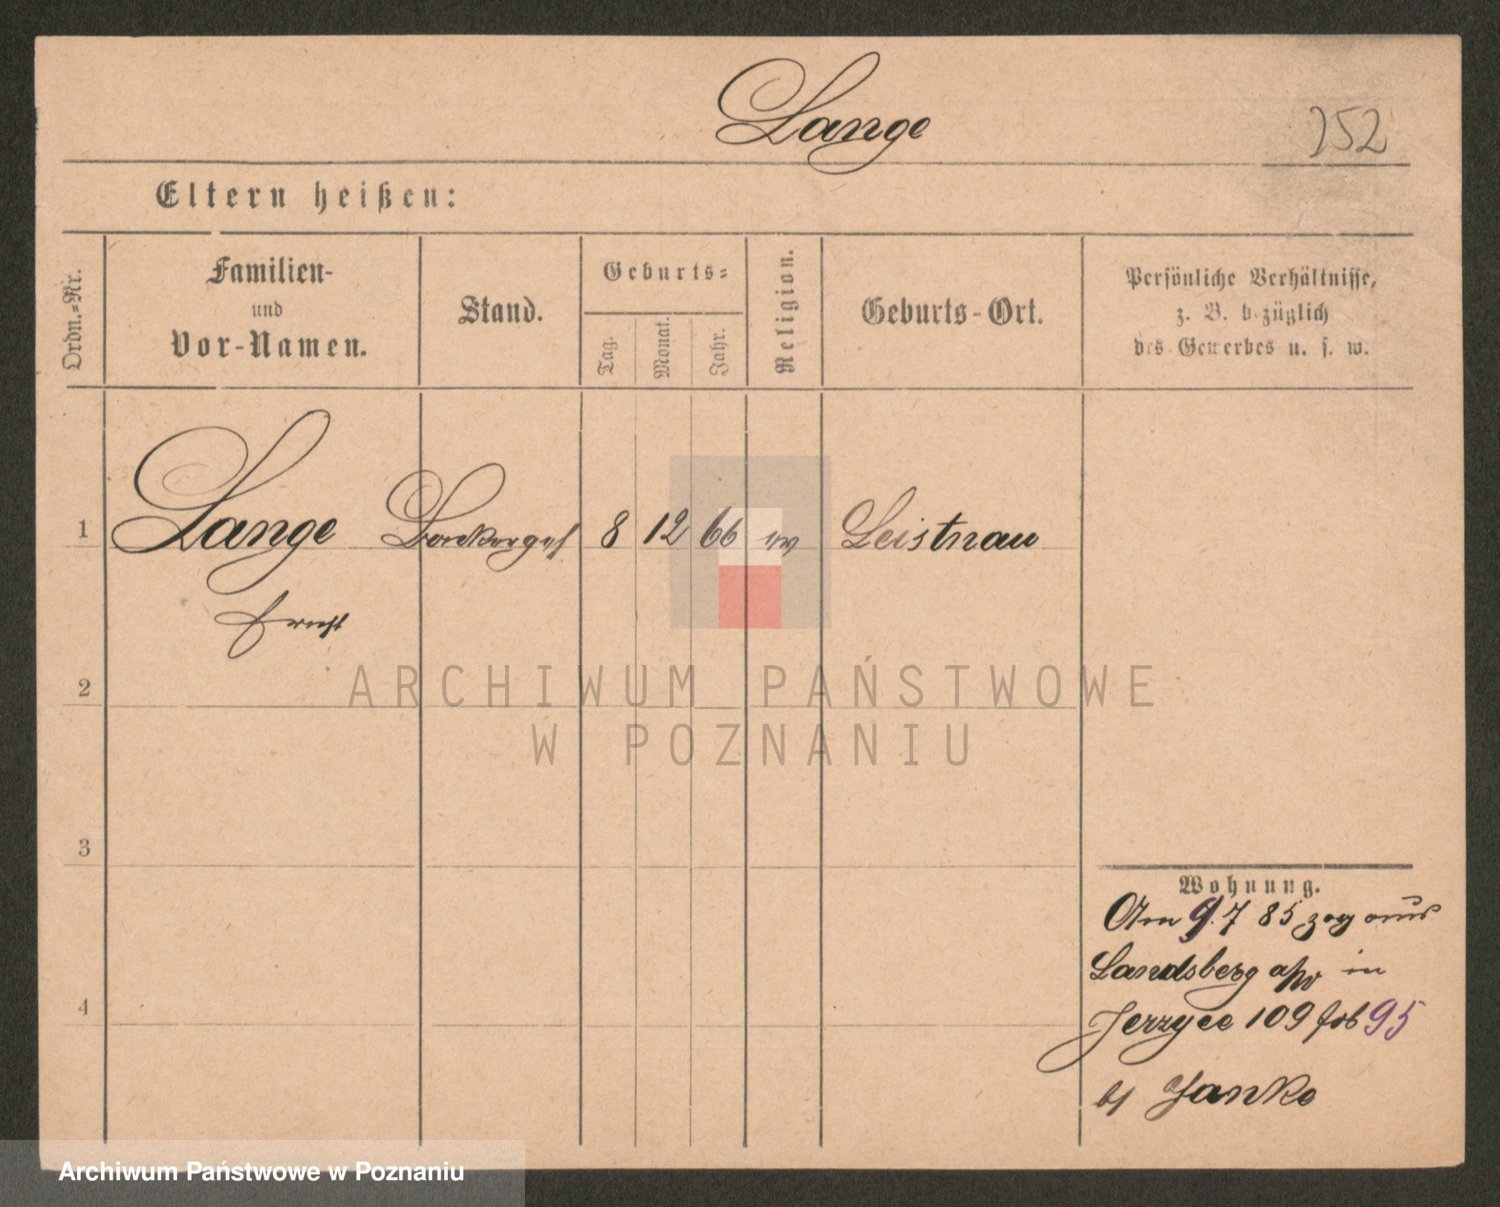 Lange
252
Eltern heißen:
Ordn.-Nr.
Familien-
und
Vor-Namen.
Stand.
Geburts-
Tag.
Monat.
Jahr.
Religion.
Geburts-Ort.
Persönliche Verhältnisse,
z. B. bezüglich
des Gewerbes u. s. w.
1 Lange 8 12 66 ev Leistnau
2
3
4
Wohnung.
Am 9.7 85 zog aus
Landsberg a/w in
Jerzyce 109 95
b/ Janke
ARCHIWUM PAŃSTWOWE
W POZNANIU
Archiwum Państwowe w Poznaniu